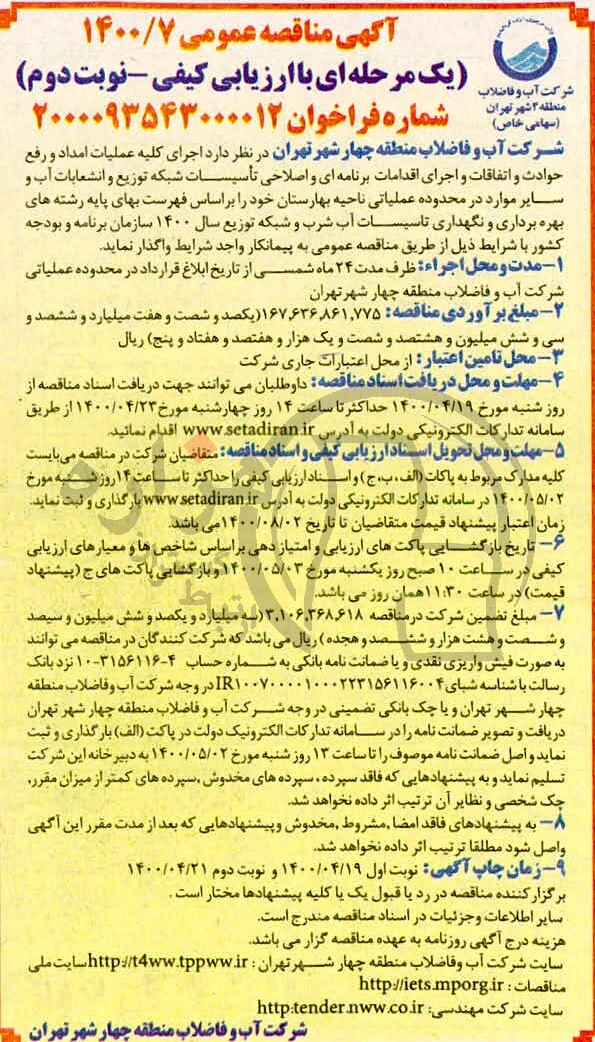 آگهی مناقصه عمومی ۱۴۰۰/۷
(یک مرحله ای با ارزیابی کیفی – نوبت دوم)
شماره فراخوان ۲۰۰۰۰۹۳۵۴۳۰۰۰۰۱۲
شرکت آب و فاضلاب
منطقه ۴ شهر تهران
(سهامی خاص)
شرکت آب و فاضلاب منطقه چهار شهر تهران در نظر دارد اجرای کلیه عملیات امداد و رفع
حوادث و اتفاقات و اجرای اقدامات برنامه ای و اصلاحی تأسیسات شبکه توزیع و انشعابات آب و
سایر موارد در محدوده عملیاتی ناحیه بهارستان خود را براساس فهرست بهای پایه رشته های
بهره برداری و نگهداری تاسیسات آب شرب و شبکه توزیع سال ۱۴۰۰ سازمان برنامه و بودجه
کشور با شرایط ذیل از طریق مناقصه عمومی به پیمانکار واجد شرایط واگذار نماید.
۱- مدت و محل اجراء: ظرف مدت ۲۴ ماه شمسی از تاریخ ابلاغ قرارداد در محدوده عملیاتی
شرکت آب و فاضلاب منطقه چهار شهر تهران
۲- مبلغ برآوردی مناقصه: ۱۶۷,۶۳۶,۸۶۱,۷۷۵(یکصد و شصت و هفت میلیارد و ششصد و
سی و شش میلیون و هشتصد و شصت و یک هزار و هفتصد و هفتاد و پنج) ریال
۳- محل تامین اعتبار: از محل اعتبارات جاری شرکت
۴- مهلت و محل دریافت اسناد مناقصه: داوطلبان می توانند جهت دریافت اسناد مناقصه از
روز شنبه مورخ ۱۴۰۰/۰۴/۱۹ حداکثر تا ساعت ۱۴ روز چهارشنبه مورخ ۱۴۰۰/۰۴/۲۳ از طریق
سامانه تدارکات الکترونیکی دولت به آدرس www.setadiran.ir اقدام نمائید.
۵- مهلت و محل تحویل اسناد ارزیابی کیفی و اسناد مناقصه: متقاضیان شرکت در مناقصه می‌بایست
کلیه مدارک مربوط به پاکات (الف، ب، ج) و اسناد ارزیابی کیفی را حداکثر تا ساعت ۱۴ روز شنبه مورخ
۱۴۰۰/۰۵/۰۲ در سامانه تدارکات الکترونیکی دولت به آدرس www.setadiran.ir بارگذاری و ثبت نماید.
زمان اعتبار پیشنهاد قیمت متقاضیان تا تاریخ ۱۴۰۰/۰۸/۰۲ می باشد.
۶- تاریخ بازگشایی پاکت های ارزیابی و امتیاز دهی براساس شاخص ها و معیارهای ارزیابی
کیفی در ساعت ۱۰ صبح روز یکشنبه مورخ ۱۴۰۰/۰۵/۰۳ و بازگشایی پاکت های ج (پیشنهاد
قیمت) در ساعت ۱۱:۳۰ همان روز می باشد.
۷- مبلغ تضمین شرکت در مناقصه ۳,۱۰۶,۳۶۸,۶۱۸ (سه میلیارد و یکصد و شش میلیون و سیصد
و شصت و هشت هزار و ششصد و هجده) ریال می باشد که شرکت کنندگان در مناقصه می توانند
به صورت فیش واریزی نقدی و یا ضمانت نامه بانکی به شماره حساب ۴-۳۱۵۶۱۱۶-۱۰ نزد بانک
رسالت با شناسه شبای IR۱۰۰۷۰۰۰۰۱۰۰۰۲۲۳۱۵۶۱۱۶۰۰۴ در وجه شرکت آب و فاضلاب منطقه
چهار شهر تهران و یا چک بانکی تضمینی در وجه شرکت آب و فاضلاب منطقه چهار شهر تهران
دریافت و تصویر ضمانت نامه را در سامانه تدارکات الکترونیک دولت در پاکت (الف) بارگذاری و ثبت
نماید و اصل ضمانت نامه موصوف را تا ساعت ۱۳ روز شنبه مورخ ۱۴۰۰/۰۵/۰۲ به دبیرخانه این شرکت
تسلیم نماید و به پیشنهادهایی که فاقد سپرده، سپرده های مخدوش ,سپرده های کمتر از میزان مقرر,
چک شخصی و نظایر آن ترتیب اثر داده نخواهد شد.
۸- به پیشنهادهای فاقد امضا ,مشروط ,مخدوش و پیشنهادهایی که بعد از مدت مقرر این آگهی
واصل شود مطلقا ترتیب اثر داده نخواهد شد.
۹- زمان چاپ آگهی: نوبت اول ۱۴۰۰/۰۴/۱۹ و نوبت دوم ۱۴۰۰/۰۴/۲۱
برگزار کننده مناقصه در رد یا قبول یک یا کلیه پیشنهادها مختار است .
سایر اطلاعات و جزئیات در اسناد مناقصه مندرج است.
هزینه درج آگهی روزنامه به عهده مناقصه گزار می باشد.
سایت شرکت آب و فاضلاب منطقه چهار شهر تهران : http://t4ww.tppww.ir سایت ملی
مناقصات : http://iets.mporg.ir
سایت شرکت مهندسی: http:tender.nww.co.ir
شرکت آب و فاضلاب منطقه چهار شهر تهران